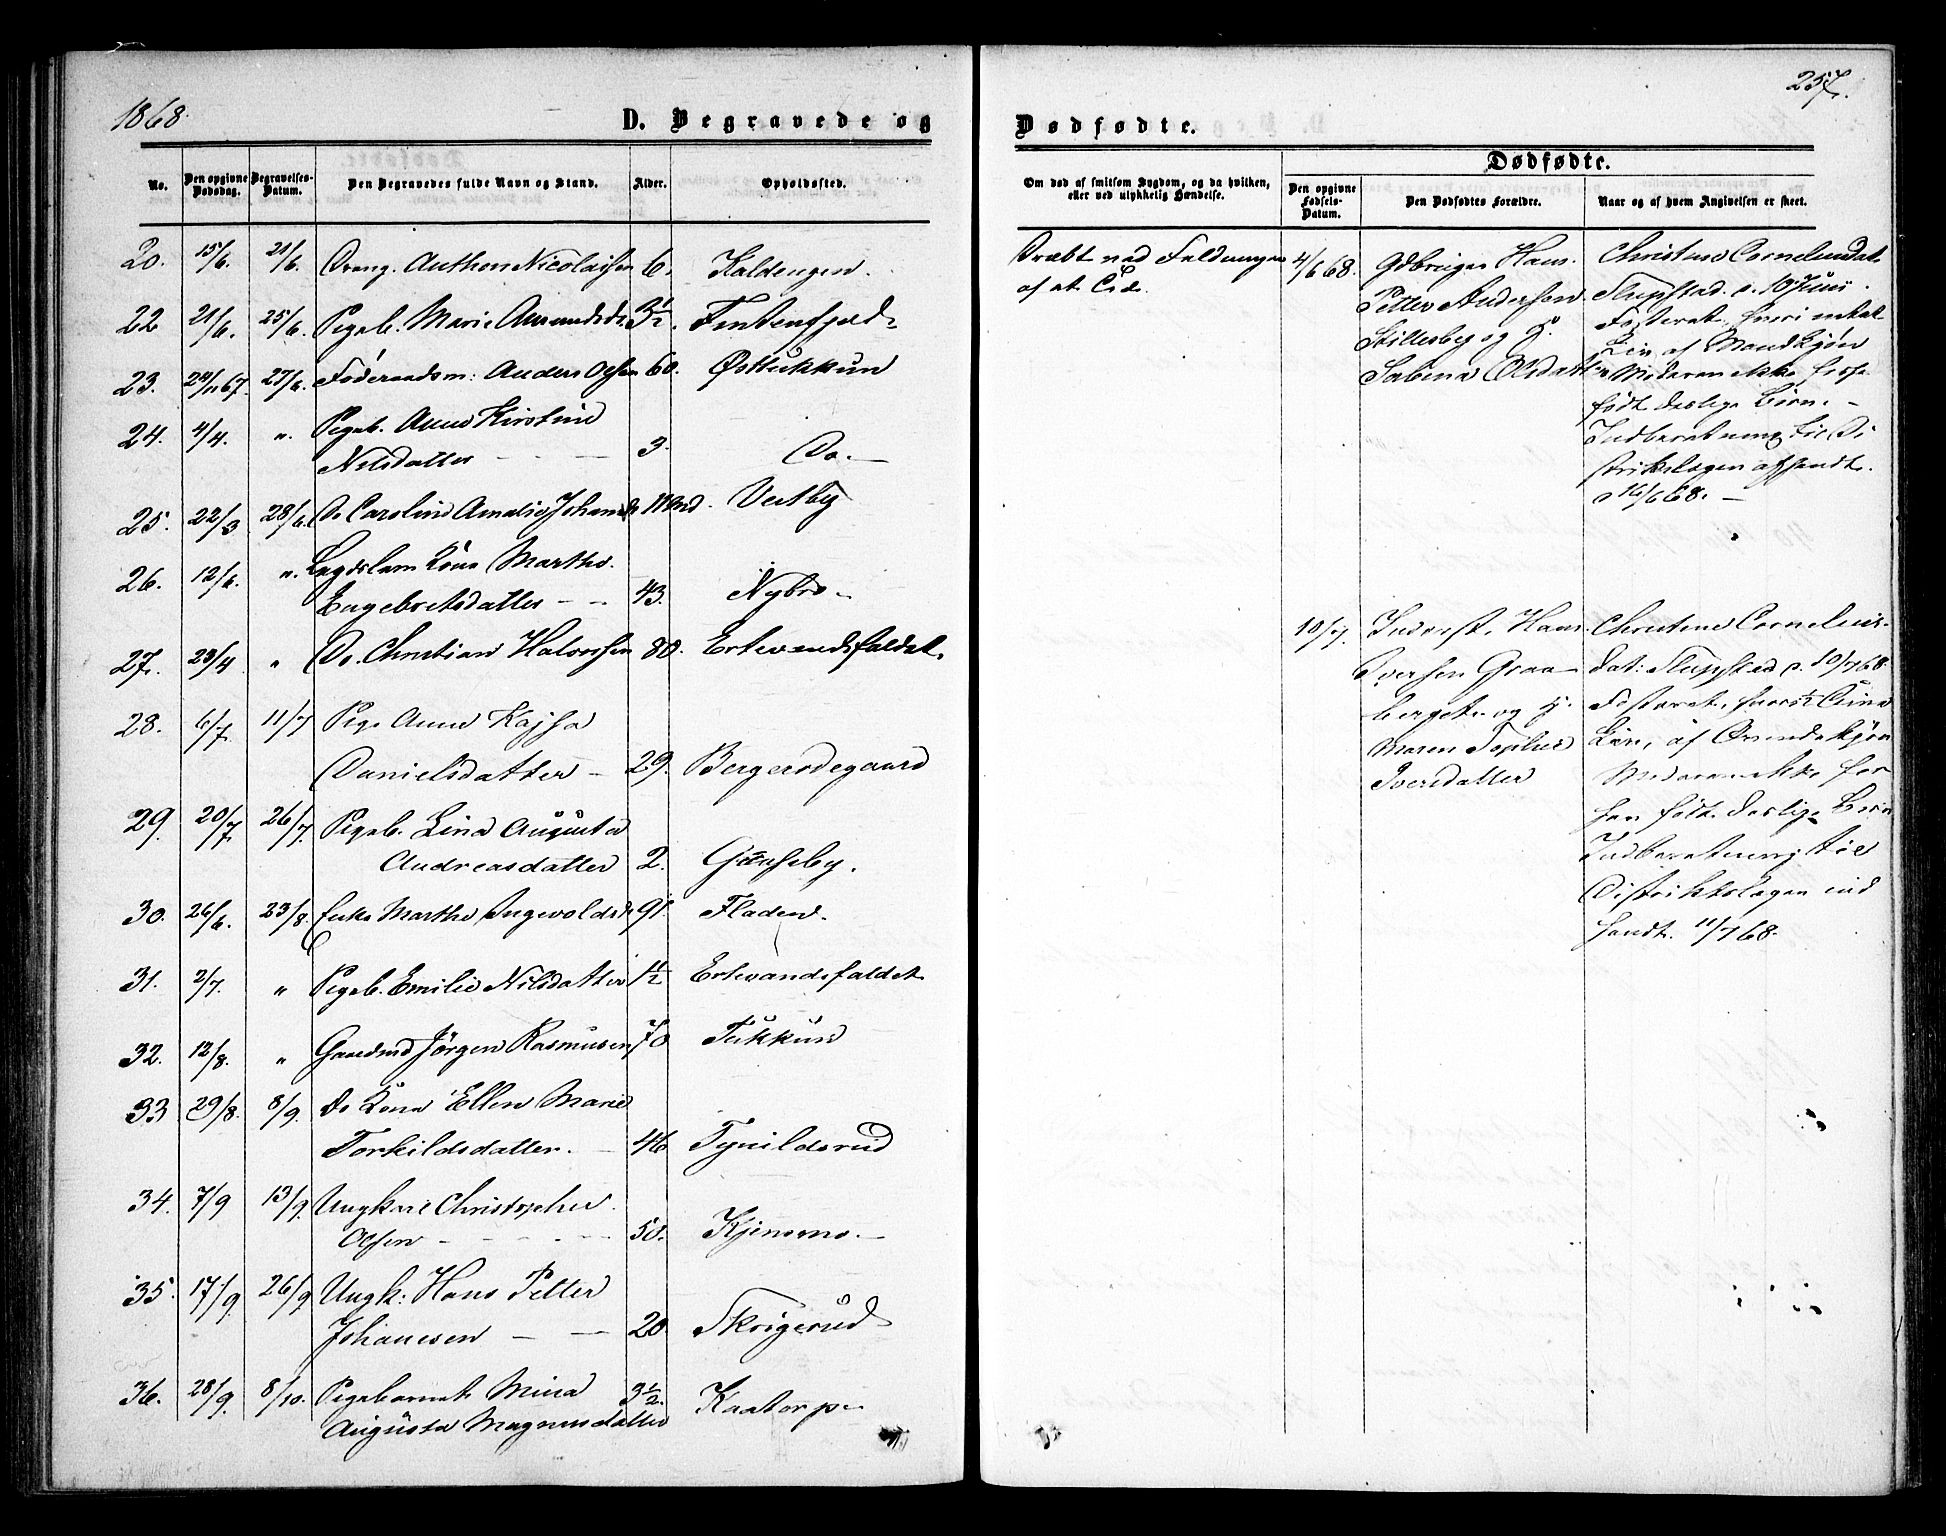 1868.
257.
D. Begravede og
Dødfødte.
No.
Den opgivne Dødsdag.
Begravelses-Datum.
Den Begravedes fulde Navn og Stand.
Alder.
Opholdssted.
Om død af smitsom Sygdom, og da hvilken, eller ved ulykkelig Hændelse.
Dødfødte.
Den opgivne Fødsels-Datum.
Den Dødfødtes Forældre.
Naar og af hvem Angivelsen er skeet.
20. 15/6. 21/6. Dreng. Anthon Nicolaisen 6. Kaldengen.
22 21/6. 25/6. Pigeb. Marie Amundsd. 3½. Tintenfjeld
23. 24/11 67. 27/6. Føderaadsm: Anders Olsen 60. Østtukkun
24. 4/4. „. Pigeb. Anne Kirstine
Nilsdatter — — 3. Do. —
25. 22/3 28/6. Do Caroline Amalie Johansd. Vestby
26. 12/6. „. Lægdslem Kone Marthe
Engebretsdatter — — 43. Nybro.
27. 23/4 „ Do. Christian Halvorsen 80. Ertevandsfaldet.
28. 6/7. 11/7 Pige Anne Kajsa
Danielsdatter — 29. Bergerødegaard
29. 20/7. 26/7. Pigeb. Lina Augusta
Andreasdatter 2. Gaaseby.
30. 26/6. 23/8. Enke Marthe Ingevoldsd. 91. Fladen.
31. 2/7. „ Pigeb. Emilie Nilsdatter 1½ Ertevandsfaldet
32. 12/8. „ Gaardmd Jörgen Rasmusen 70 Tukkun
33 29/8. 8/9. Do Kone Ellen Marie
Torkildsdatter. — 46 Tynildsrud
34. 7/9 13/9. Ungkarl Christopher
Olsen — — — 50. Kjensmo. —
35. 17/9. 26/9 Ungk: Hans Petter
Johanesen — — 20. Skrigerud
36. 28/9. 8/10. Pigebarnet Mina 3½. Kaatorp
Augusta Magnusdatter
Dræbt ved Faldningen
af et Træ.
4/6 68.
Gdbruger Hans
Petter Andersen
Stillesby og H.
Sabina Olsdatter
Christine Cornelius dat.
Slupstad d. 10 Juni.
Fosteret
af Mandkjön
Moderen ikke før
født deslige Børn. —
Indberetning til Di
striktslægen afsendt.
d 16/6 68. —
10/7.
Inderst. Hans
Iversen Graa
berget og H.
Maren
Iversdatter
Christine Cornelius
dat: Slupstad d. 10/7 68.
Fosteret,
af Qvindekjøn
Moderen ikke før
født deslige Børn
Indberetning til
Distriktslægen ind
sendt. 11/7 68.